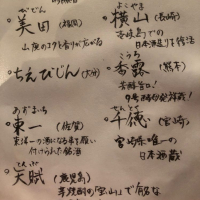 びでん
美田 (福岡)
山廃のコクと香りが広がる
よこやま
横山 (長崎)
壱岐島での
日本酒造りを復活
ちえびじん (大分)
こうろ
香露 (熊本)
芳醇旨口!
9号酵母発祥蔵!
あづまいち
東一 (佐賀)
東洋一の酒になる事を願い
付けられた銘酒
せんとく
千徳 (宮崎)
宮崎県唯一の
日本酒蔵
てんぶ
天賦 (鹿児島)
芋焼酎の「宝山」で有名な